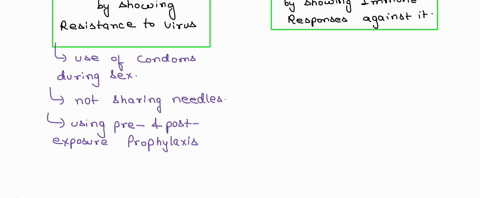 by showing
Resistance to virus
by showing Immune
Responses against it.
↳ use of condoms
during sex.
↳ not sharing needles.
↳ using pre- & post-
exposure Prophylaxis